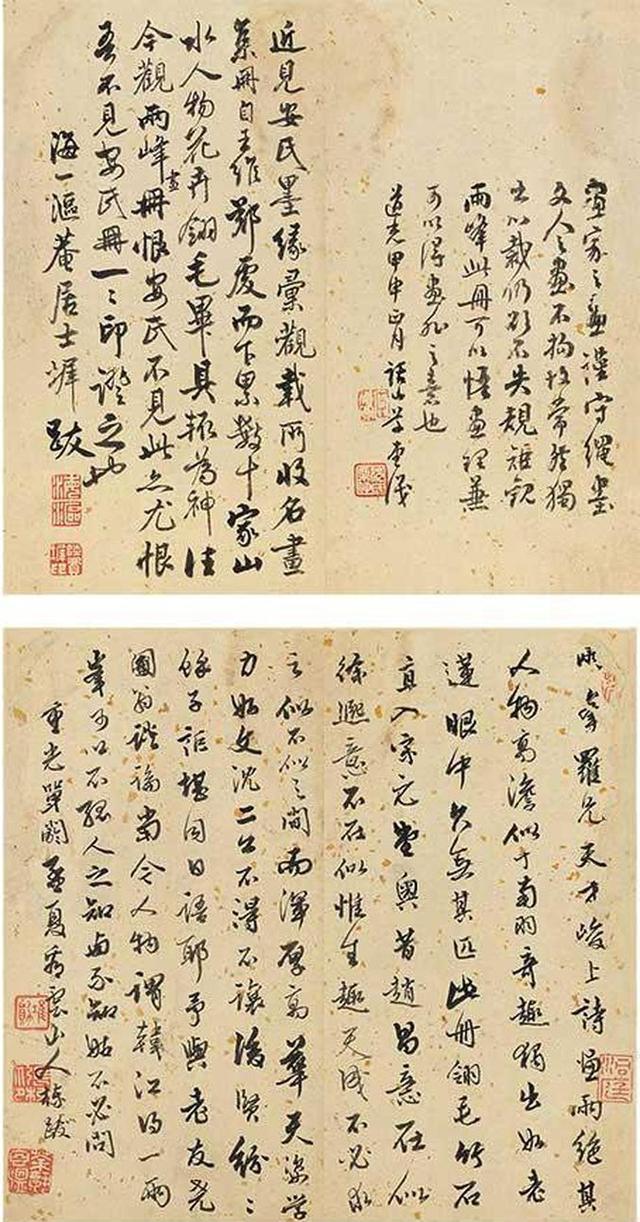 畫家之畫謹守繩墨
文人之畫不拘故常然獨
出心裁仍能不失規矩觀
兩峰此冊可以悟畫理兼
可以得畫外之意也
道光甲申正月話山草堂識
近見安氏墨緣彙觀載所收名畫
集冊自王維鄭虔而下累數十家山
水人物花卉翎毛畢具輒為神往
今觀兩峰畫冊恨安氏不見此亦尤恨
吾不見安氏冊一一印證之也
海一漚菴居士墀跋
兩峯羅兄天才峻上詩畫兩絕其
人物高澹似丁南羽奇趣獨出如老
蓮眼中久無其匹此冊翎毛竹石
直入宋元堂奧昔趙昌意在似
徐熙意不在似惟生趣天成不必求
之似不似之間而渾厚高華天姿學
力如文沈二公不得不讓後賢紛紛
餘子詎堪同日語耶予與老友堯
圃翁談論當今人物謂韓江得一兩
峯可以不孤人之知與不知姑不必問
重光單閼孟夏看雲山人棟跋